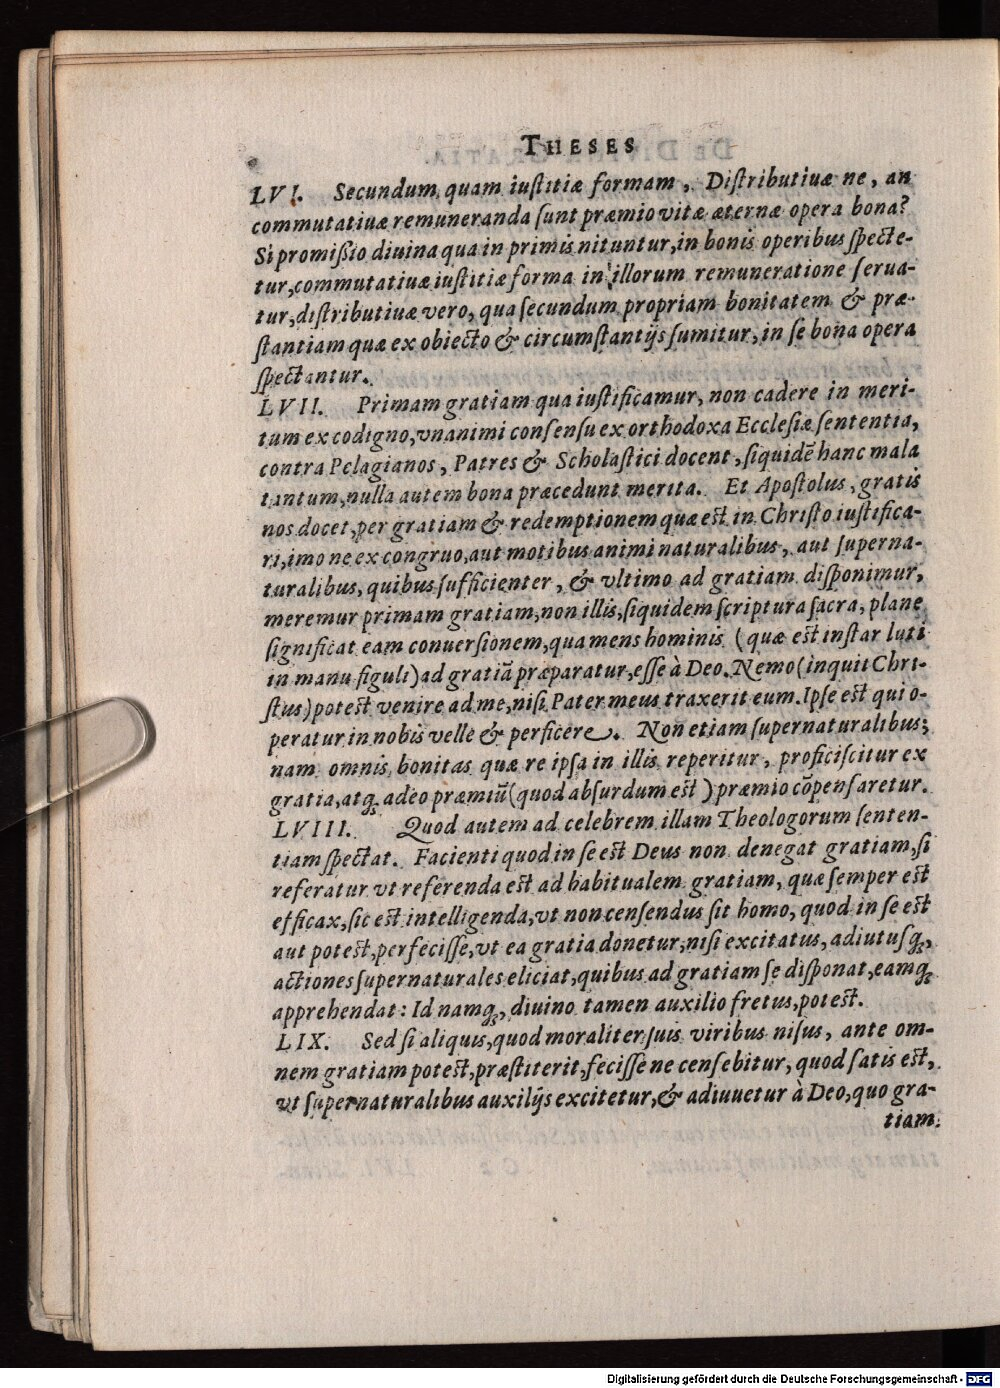 THESES
LVI. Secundum quam iustitiæ formam, Distributiuæ ne, an
commutatiuæ remuneranda sunt præmio vitæ æternæ opera bona?
Si promißio diuina qua in primis nituntur, in bonis operibus specte-
tur, commutatiuæ iustitiæ forma in illorum remuneratione serua-
tur, distributiuæ vero, qua secundum propriam bonitatem & præ-
stantiam quæ ex obiecto & circumstantijs sumitur, in se bona opera
spectantur.
LVII. Primam gratiam qua iustificamur, non cadere in meri-
tum ex codigno, vnanimi consensu ex orthodoxa Ecclesiæ sententia,
contra Pelagianos, Patres & Scholastici docent, siquidē hanc mala
tantum, nulla autem bona præcedunt merita. Et Apostolus, gratis
nos docet, per gratiam & redemptionem quæ est in Christo iustifica-
ri, imo ne ex congruo, aut motibus animi naturalibus, aut superna-
turalibus, quibus sufficienter, & vltimo ad gratiam disponimur,
meremur primam gratiam, non illis, siquidem scriptura sacra, plane
significat eam conuersionem, qua mens hominis (quæ est instar luti
in manu figuli) ad gratiā præparatur, esse à Deo. Nemo (inquit Chri-
stus) potest venire ad me, nisi Pater meus traxerit eum. Ipse est qui o-
peratur in nobis velle & perficere. Non etiam supernaturalibus;
nam omnis bonitas quæ re ipsa in illis reperitur, proficiscitur ex
gratia, atq; adeo præmiū (quod absurdum est) præmio cōpensaretur.
LVIII. Quod autem ad celebrem illam Theologorum senten-
tiam spectat. Facienti quod in se est Deus non denegat gratiam, si
referatur vt referenda est ad habitualem gratiam, quæ semper est
efficax, sic est intelligenda, vt non censendus sit homo, quod in se est
aut potest, perfecisse, vt ea gratia donetur, nisi excitatus, adiutusq;,
actiones supernaturales eliciat, quibus ad gratiam se disponat, eamq;
apprehendat: Id namq;, diuino tamen auxilio fretus, potest.
LIX. Sed si aliquis, quod moraliter suis viribus nisus, ante om-
nem gratiam potest, præstiterit, fecisse ne censebitur, quod satis est,
vt supernaturalibus auxilijs excitetur, & adiuuetur à Deo, quo gra-
tiam
Digitalisierung gefördert durch die Deutsche Forschungsgemeinschaft - DFG